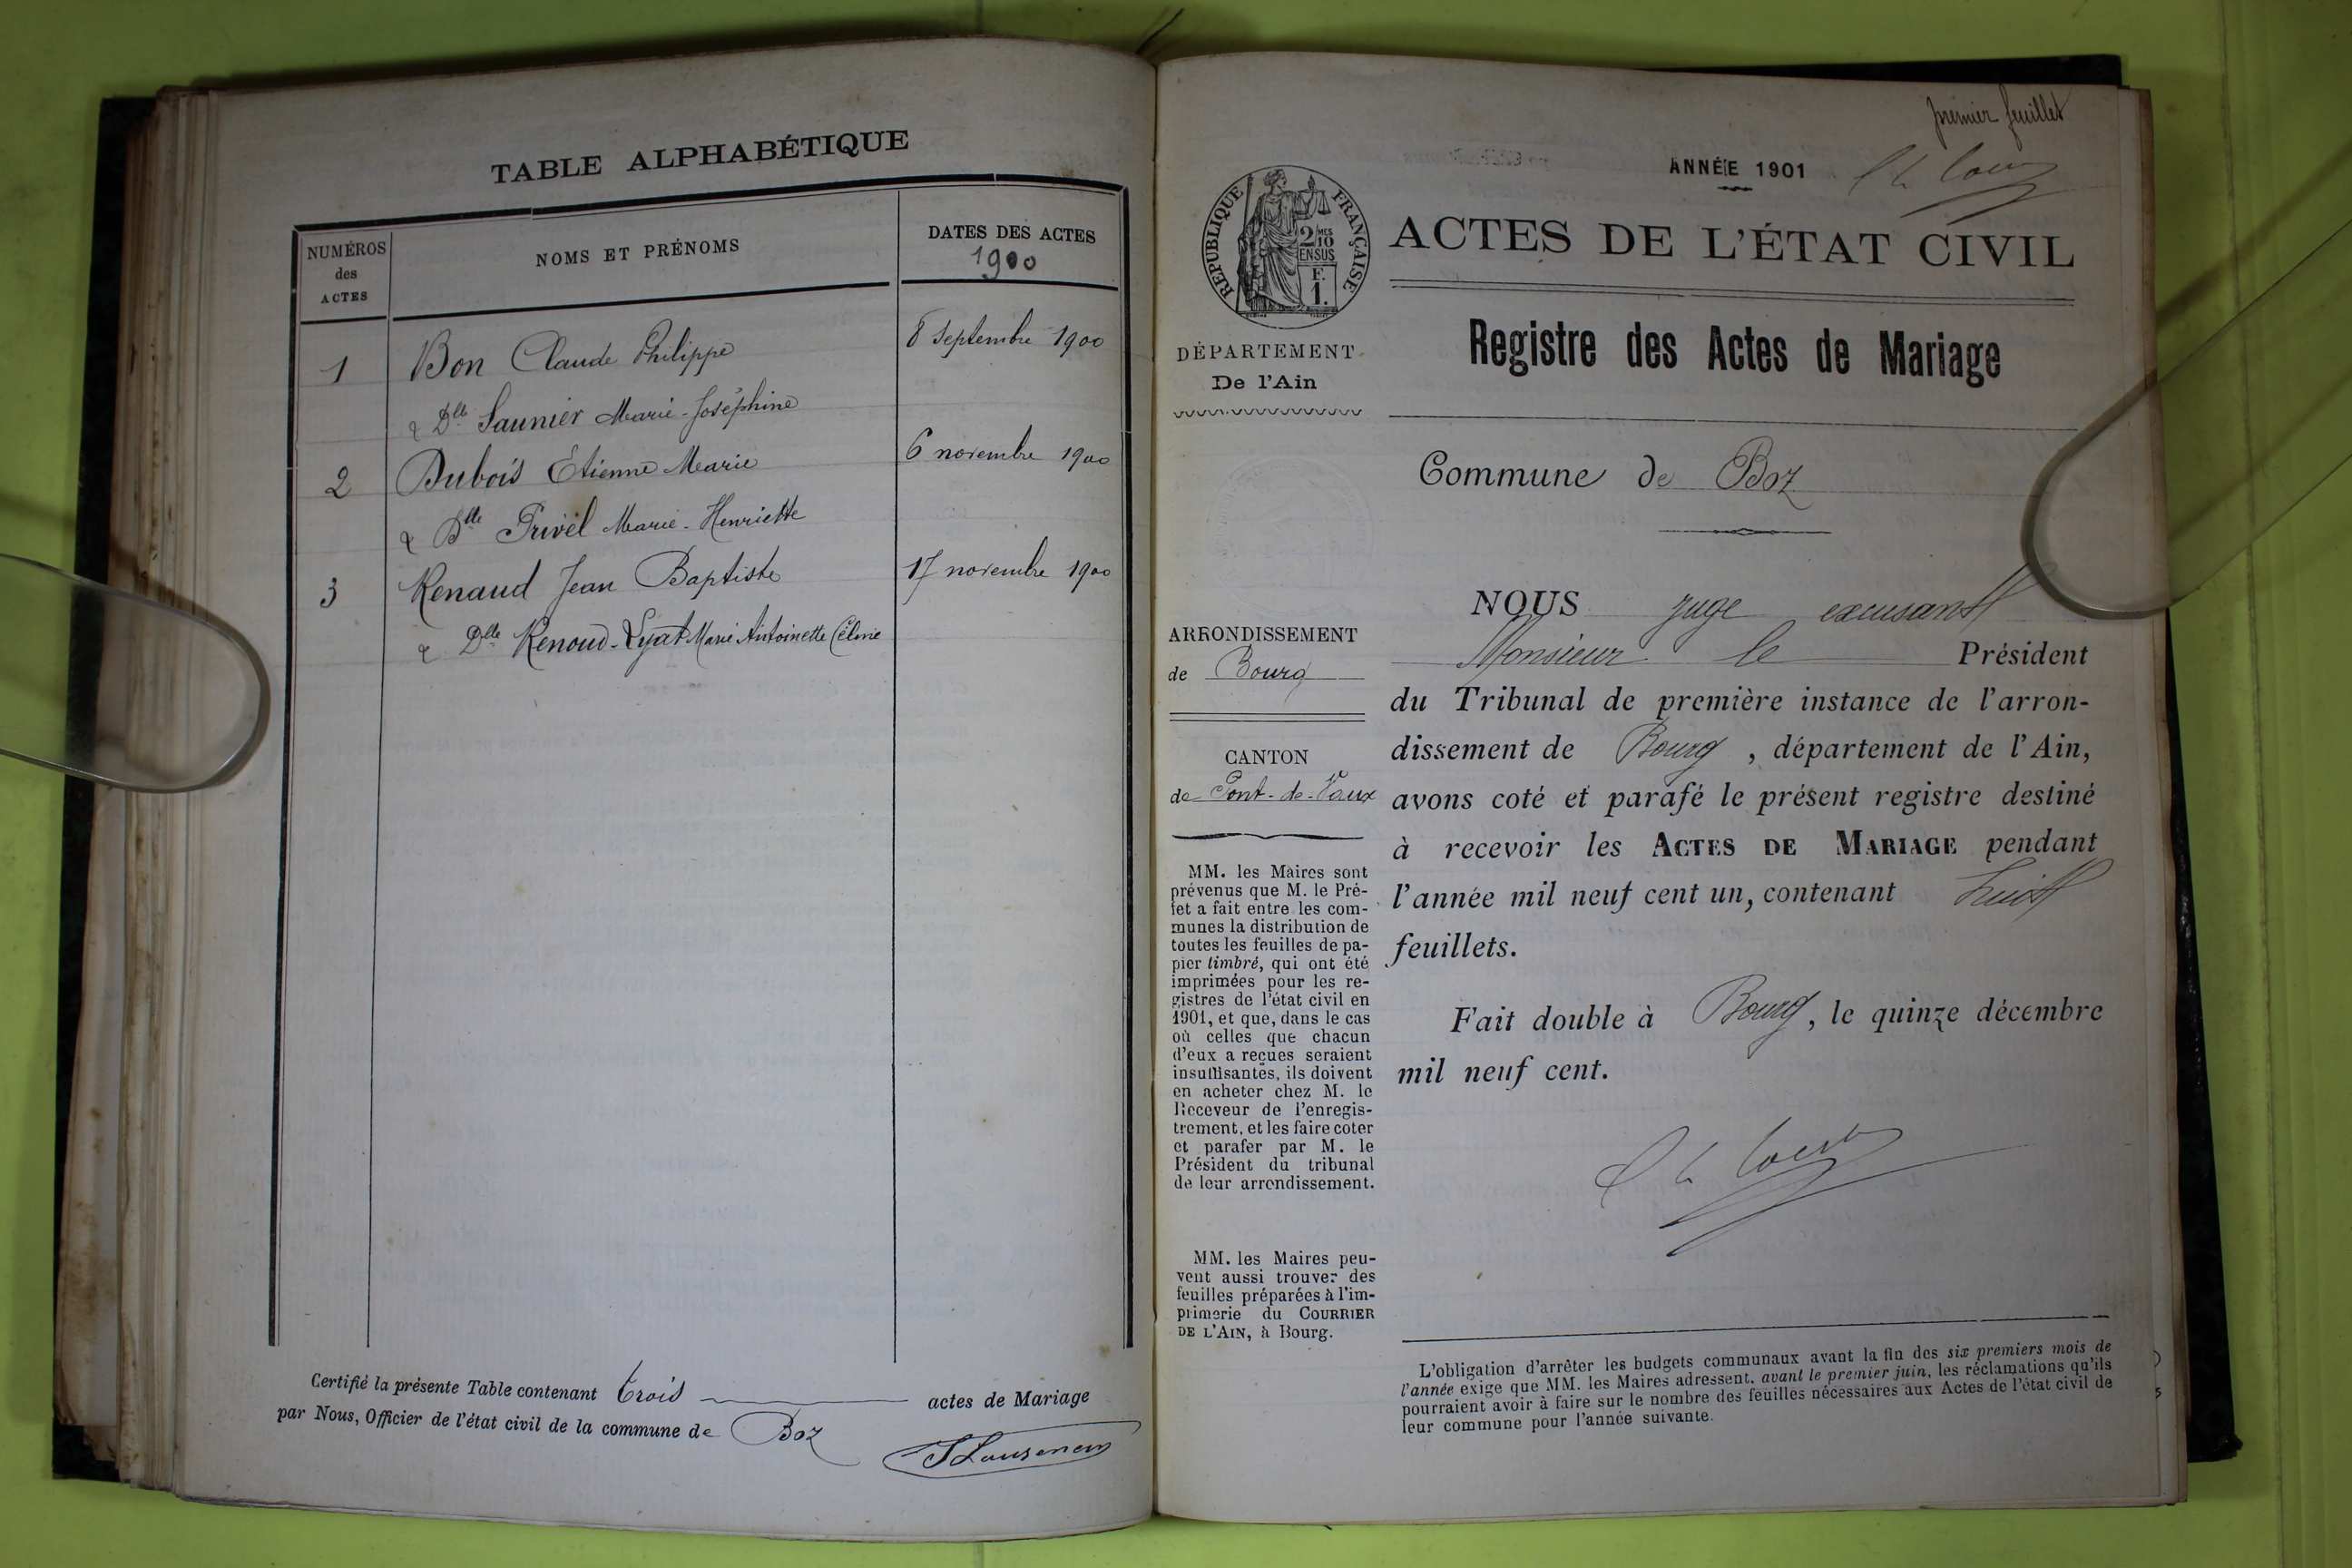 TABLE ALPHABÉTIQUE
NUMÉROS
des
ACTES
NOMS ET PRÉNOMS
DATES DES ACTES
1900
1 Bon Claude Philippe 8 septembre 1900
& Dlle Saunier Marie-Joséphine
2 Dubois Etienne Marie 6 novembre 1900
& Dlle Privel Marie-Henriette
3 Renaud Jean Baptiste 17 novembre 1900
& Dlle Renoud-Lyat Marie Antoinette
Certifié la présente Table contenant trois actes de Mariage
par Nous, Officier de l'état civil de la commune de Boz
premier feuillet
ANNÉE 1901
RÉPUBLIQUE FRANÇAISE
2/10 MES
EN SUS
F.
1.
ACTES DE L'ÉTAT CIVIL
DÉPARTEMENT
De l'Ain
Registre des Actes de Mariage
Commune de Boz
ARRONDISSEMENT
de Bourg
CANTON
de Pont-de-Vaux
MM. les Maires sont
prévenus que M. le Pré-
fet a fait entre les com-
munes la distribution de
toutes les feuilles de pa-
pier timbré, qui ont été
imprimées pour les re-
gistres de l'état civil en
1901, et que, dans le cas
où celles que chacun
d'eux a reçues seraient
insuffisantes, ils doivent
en acheter chez M. le
Receveur de l'enregis-
trement, et les faire coter
et parafer par M. le
Président du tribunal
de leur arrondissement.
MM. les Maires peu-
vent aussi trouver des
feuilles préparées à l'im-
primerie du COURRIER
DE L'AIN, à Bourg.
NOUS juge excusant
Monsieur le Président
du Tribunal de première instance de l'arron-
dissement de Bourg, département de l'Ain,
avons coté et parafé le présent registre destiné
à recevoir les ACTES DE MARIAGE pendant
l'année mil neuf cent un, contenant huit
feuillets.
Fait double à Bourg, le quinze décembre
mil neuf cent.
L'obligation d'arrêter les budgets communaux avant la fin des six premiers mois de
l'année exige que MM. les Maires adressent, avant le premier juin, les réclamations qu'ils
pourraient avoir à faire sur le nombre des feuilles nécessaires aux Actes de l'état civil de
leur commune pour l'année suivante.